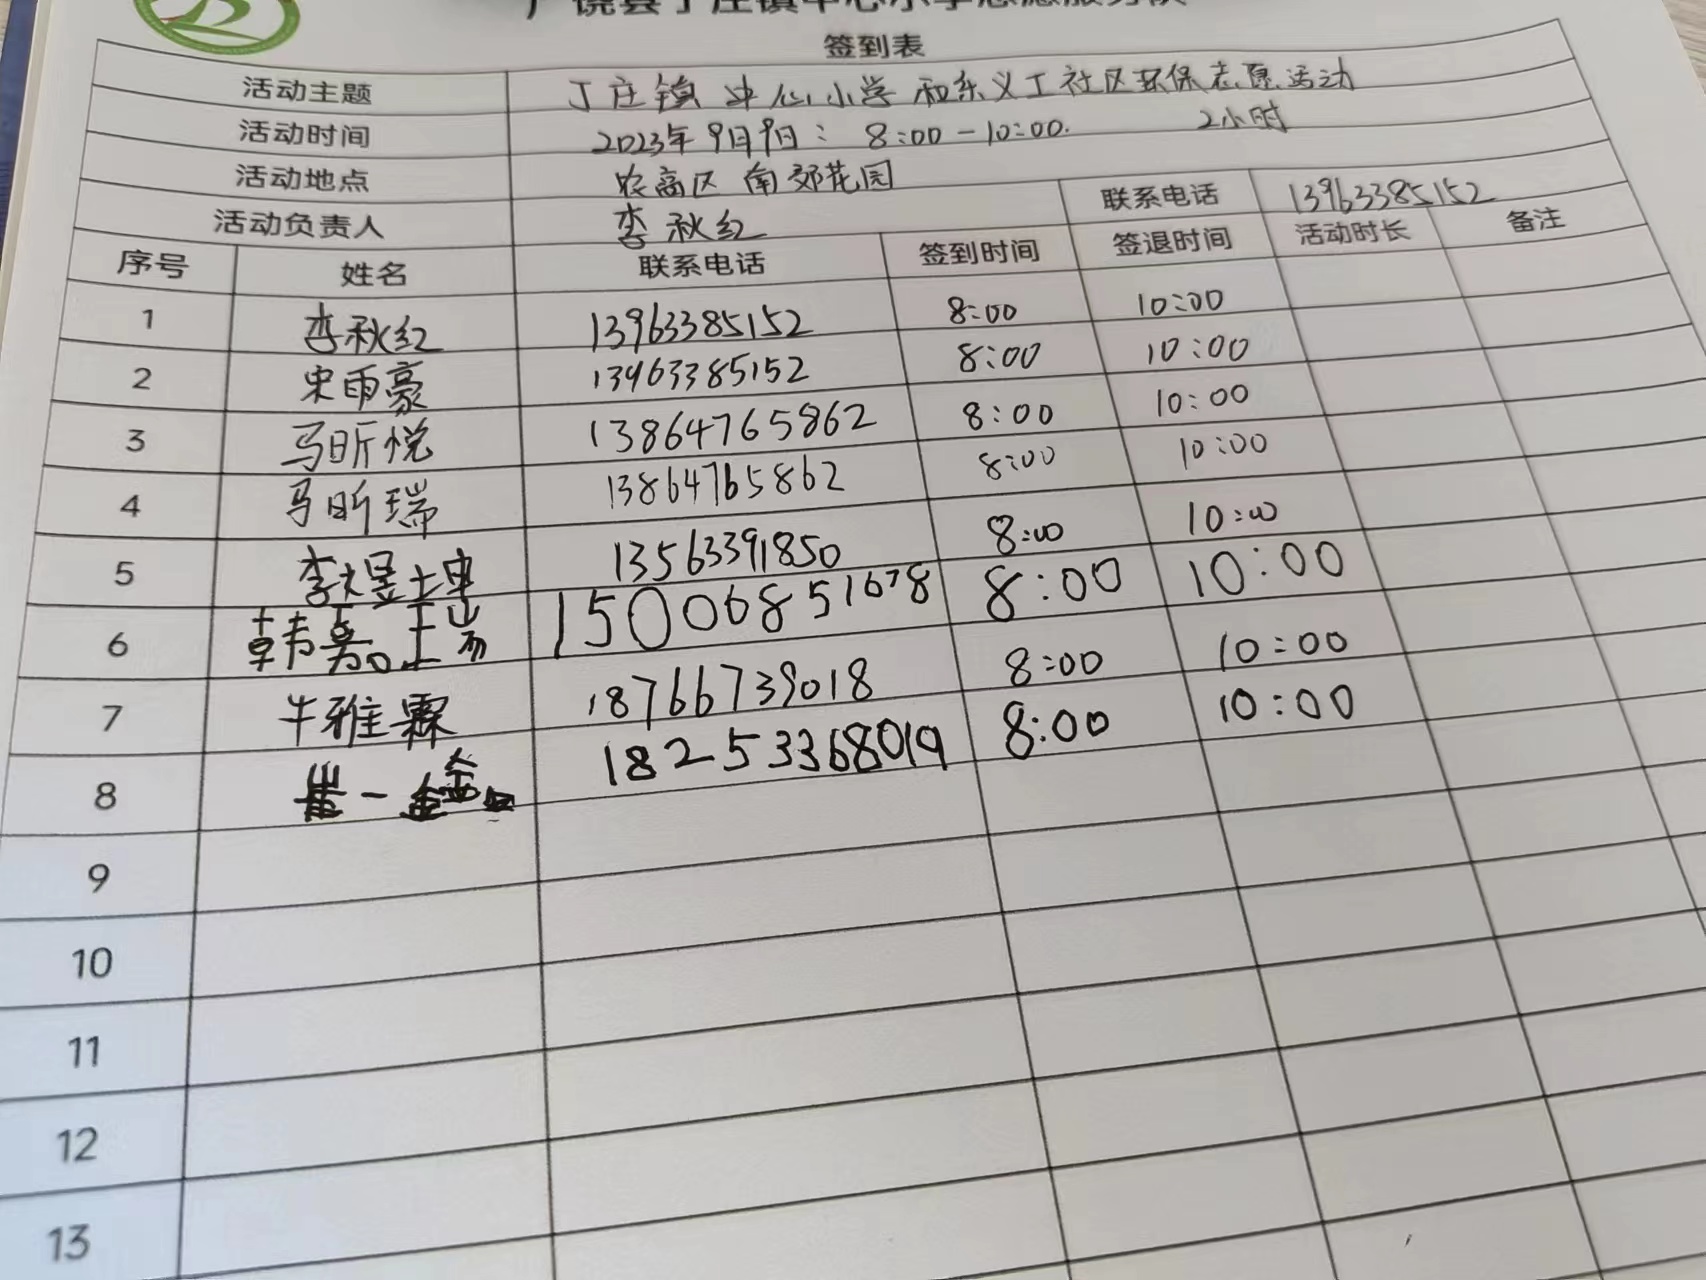 广饶县丁庄镇中心小学志愿服务队
签到表
活动主题 丁庄镇中心小学和乐义工社区环保志愿活动
活动时间 2023年9月9日: 8:00-10:00. 2小时
活动地点 农商区南郊花园
活动负责人 李秋红 联系电话 13963385152
序号 姓名 联系电话 签到时间 签退时间 活动时长 备注
1 李秋红 13963385152 8:00 10:00
2 宋雨豪 13963385152 8:00 10:00
3 马昕悦 13864765862 8:00 10:00
4 马昕瑞 13864765862 8:00 10:00
5 李煜坤 13563391850 8:00 10:00
6 韩嘉瑞 15006851678 8:00 10:00
7 牛雅霖 18766739018 8:00 10:00
8 崔一 18253368019 8:00 10:00
9
10
11
12
13